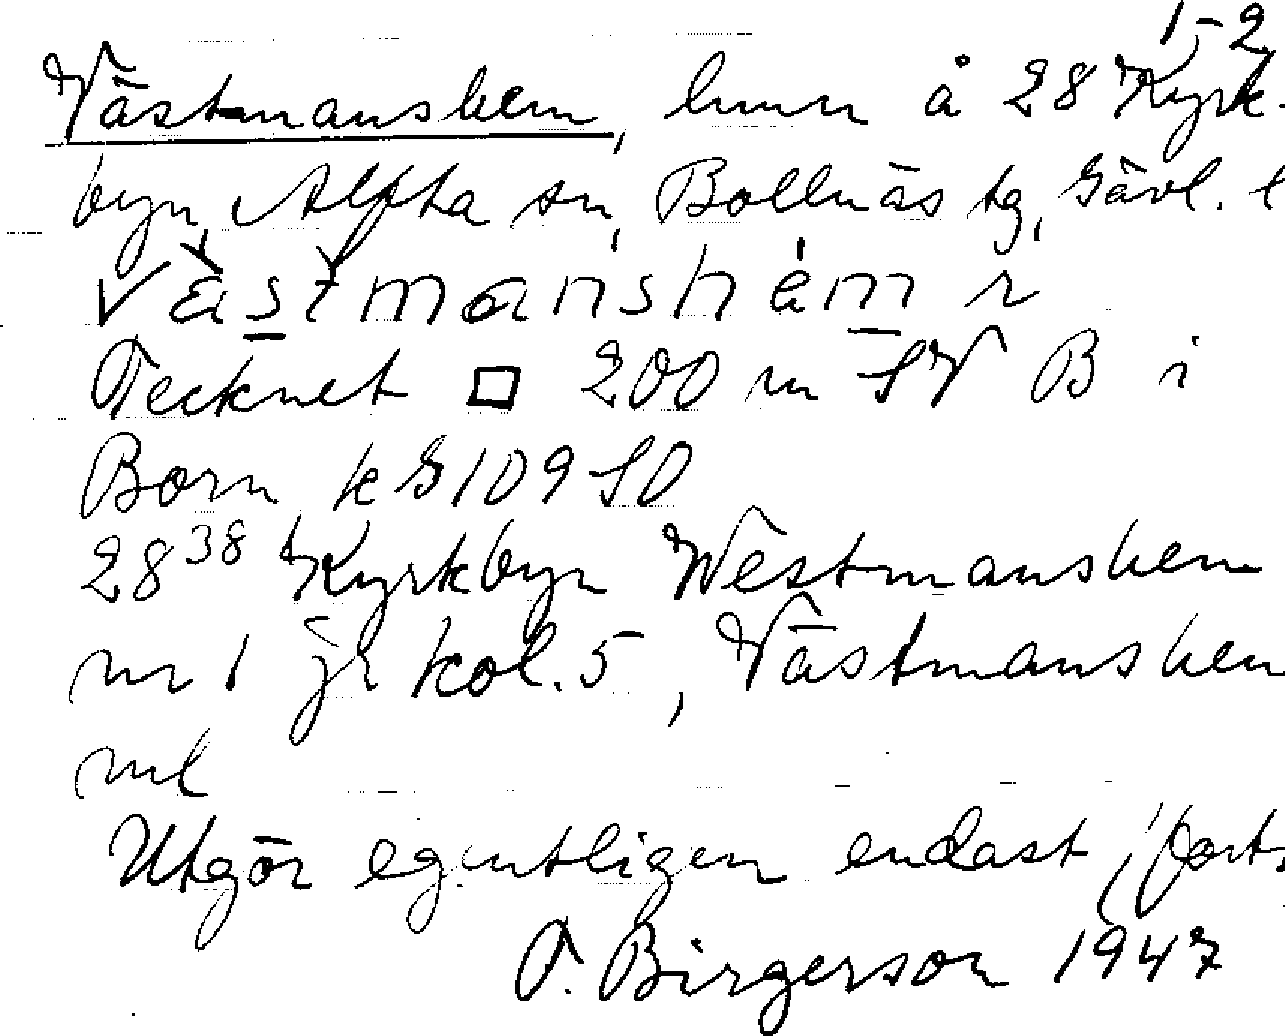 1-2
Västmanshem, hmn å 28 Kyrk-
byn, Alfta sn, Bollnäs tg, Gävl. l
västmanshem r
Tecknet □ 200 m SV B i
Born k G 109 SO
28 38 Kyrkbyn Westmanshem
nr 1 jr kol. 5, Västmanshem
ml
Utgör egentligen endast (forts
T. Birgerson 1947